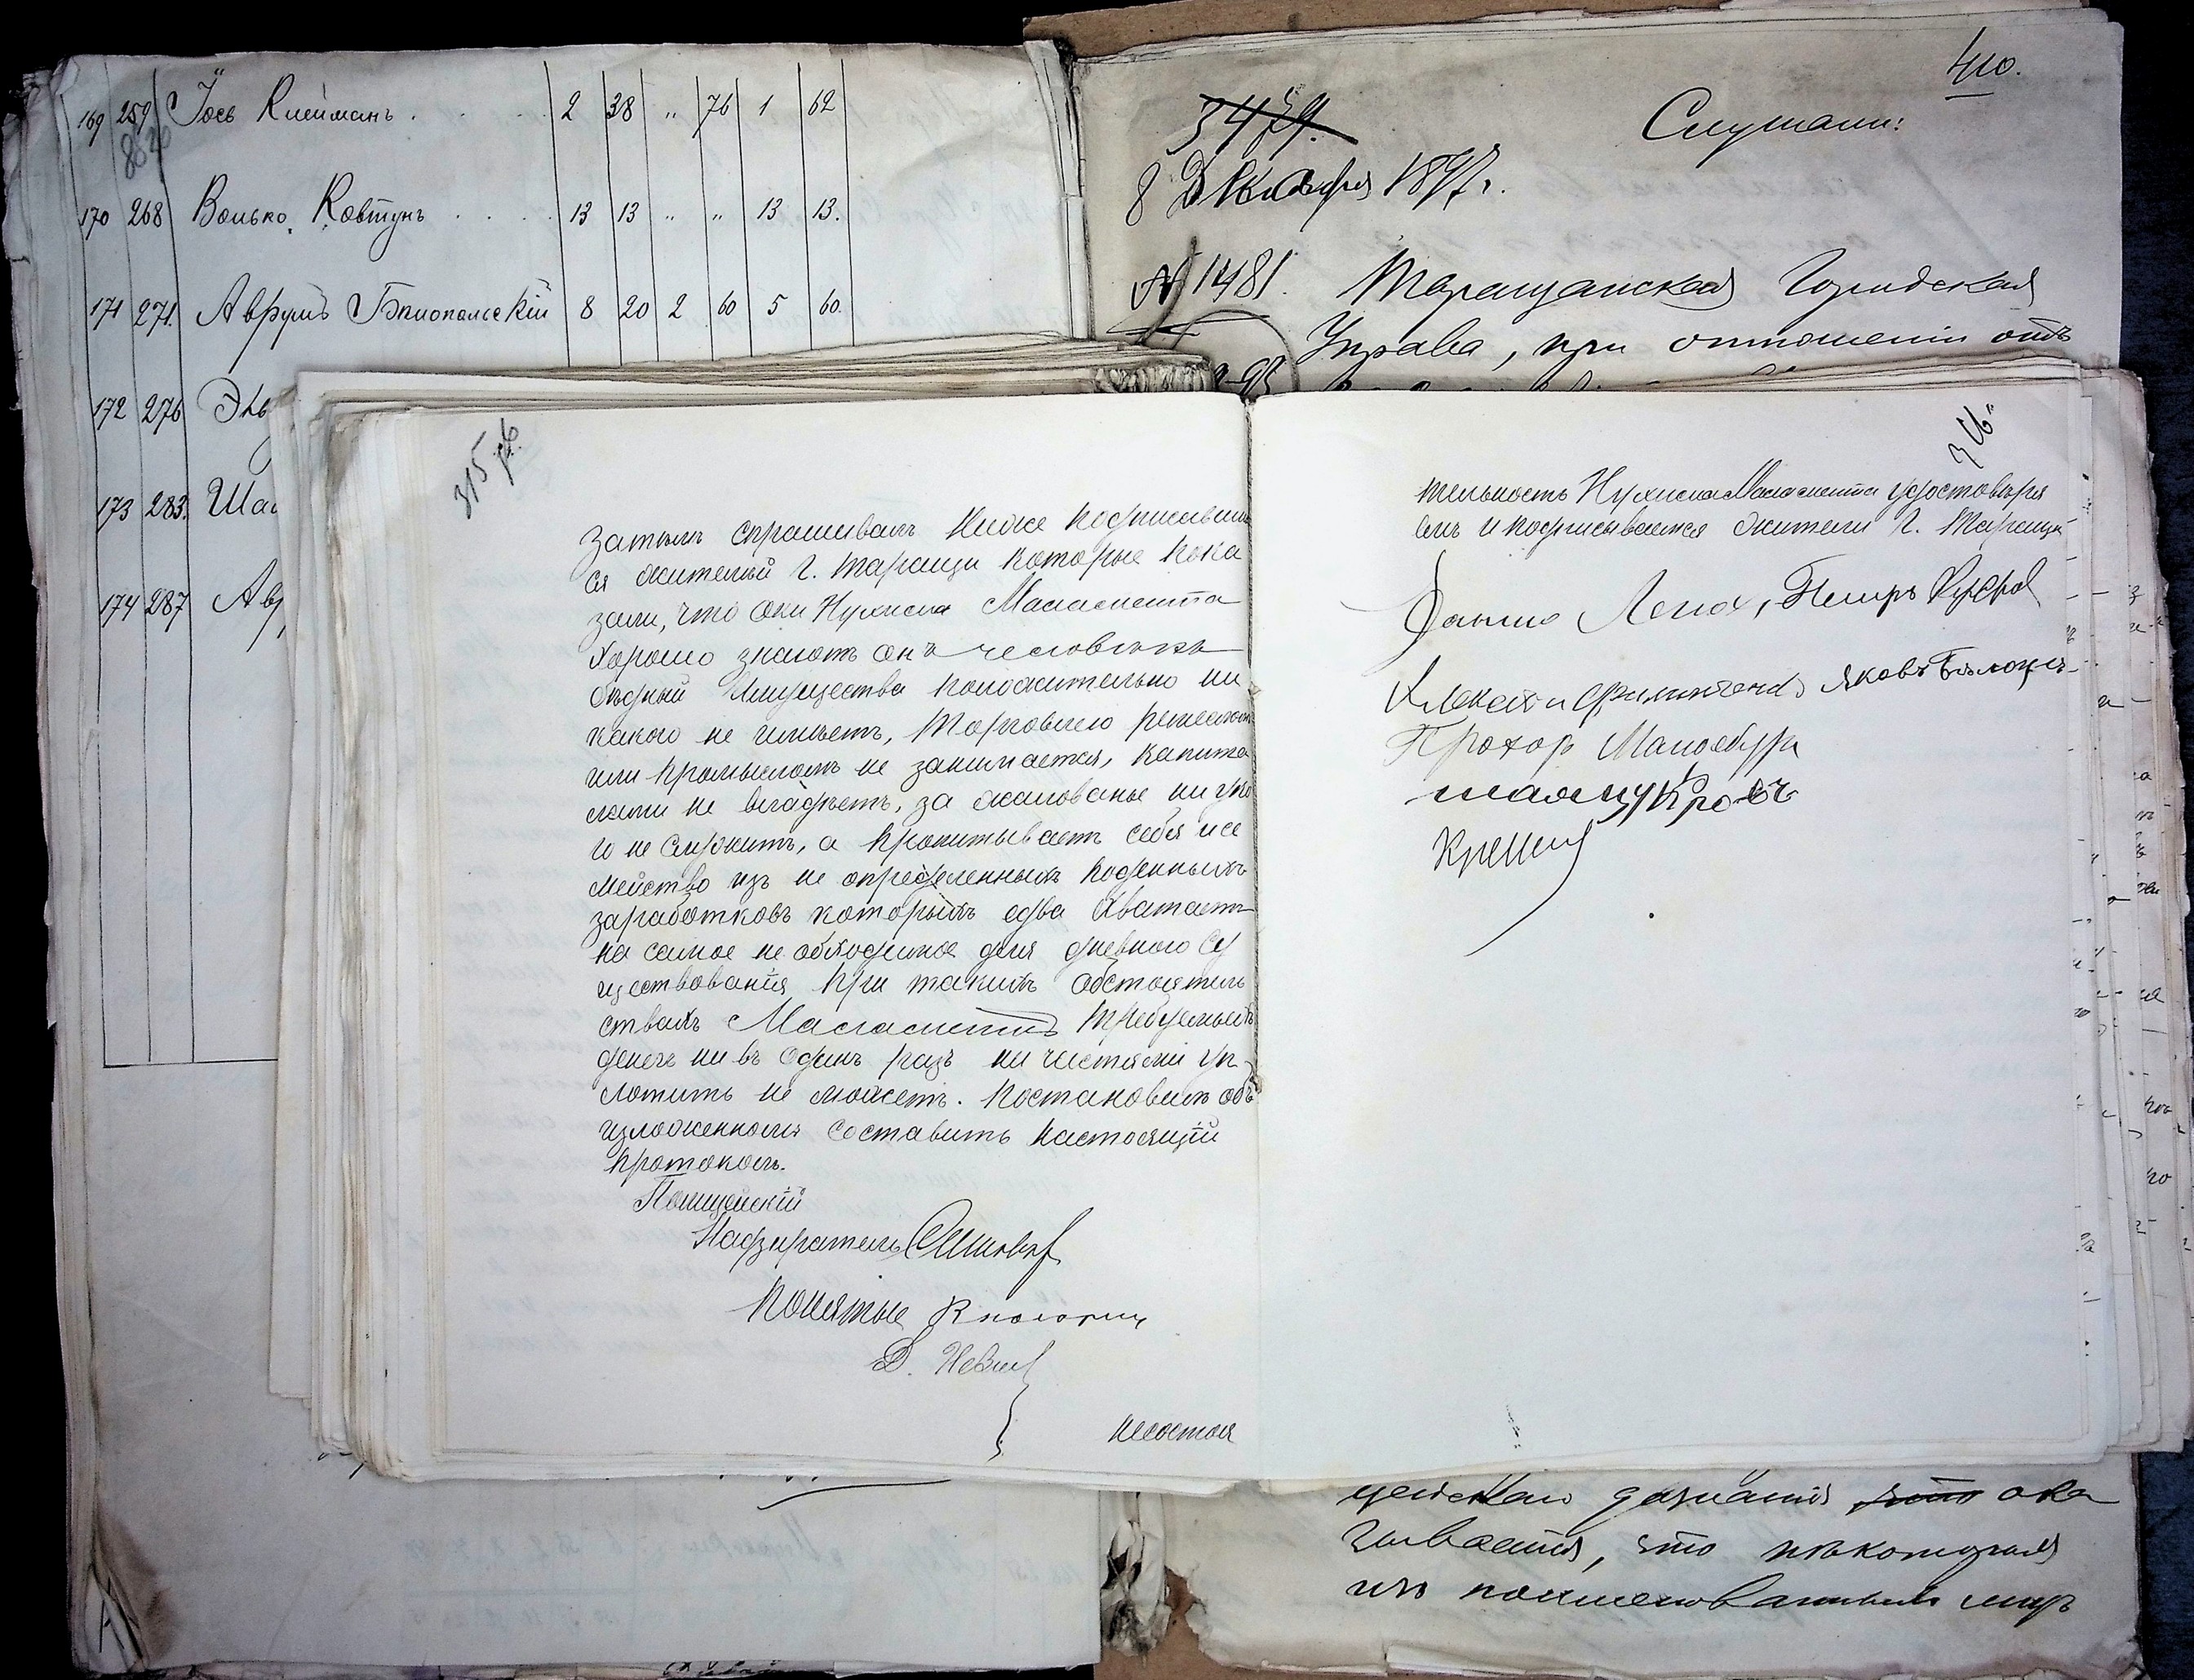 169 259 Іось Клейманъ . . . 2 38 „ 76 1 62
170 268 Волько Ковтунъ . . . . 13 13 „ „ 13 13.
171 271. Аврумъ Бялопольскій 8 20 2 60 5 60.
172 276
173 283.
174 287
410.
3479.
Слушали:
8 Декабря 1897 г.
№ 14481. Таращанская Городская
Управа, при отношеніи отъ
315 об.
затѣмъ спрашивалъ ниже подписавших
ся жителей г. Таращи которые пока
зали, что они Нухима
хорошо знаютъ онъ человѣкъ
бѣдный имущества положительно ни
какого не имѣетъ, торговлею ремесломъ
или промысломъ не занимается, капита
лами не владѣетъ, за жалованье ни у ко
го не служитъ, а пропитываетъ себя и се
мейство изъ не опредѣленныхъ поденныхъ
заработковъ которыхъ едва хватаетъ
на самое не обходимое для дневного су
ществованія при такихъ обстоятель
ствахъ требуемыхъ
денегъ ни въ одинъ разъ ни частями уп-
лотить не можетъ. Постановилъ объ
изложенномъ составить настоящій
протоколъ.
Полицейскій
Надзиратель
Понятые
Д.
несостоя
316
тельность Нухима удостовѣря
емъ и подписываемся жители г. Таращи
Данило Петръ
Алексѣй Яковъ
Прохор
цейскаго дознанія что ока
зывается, что нѣкоторыя
изъ поименованныхъ лицъ